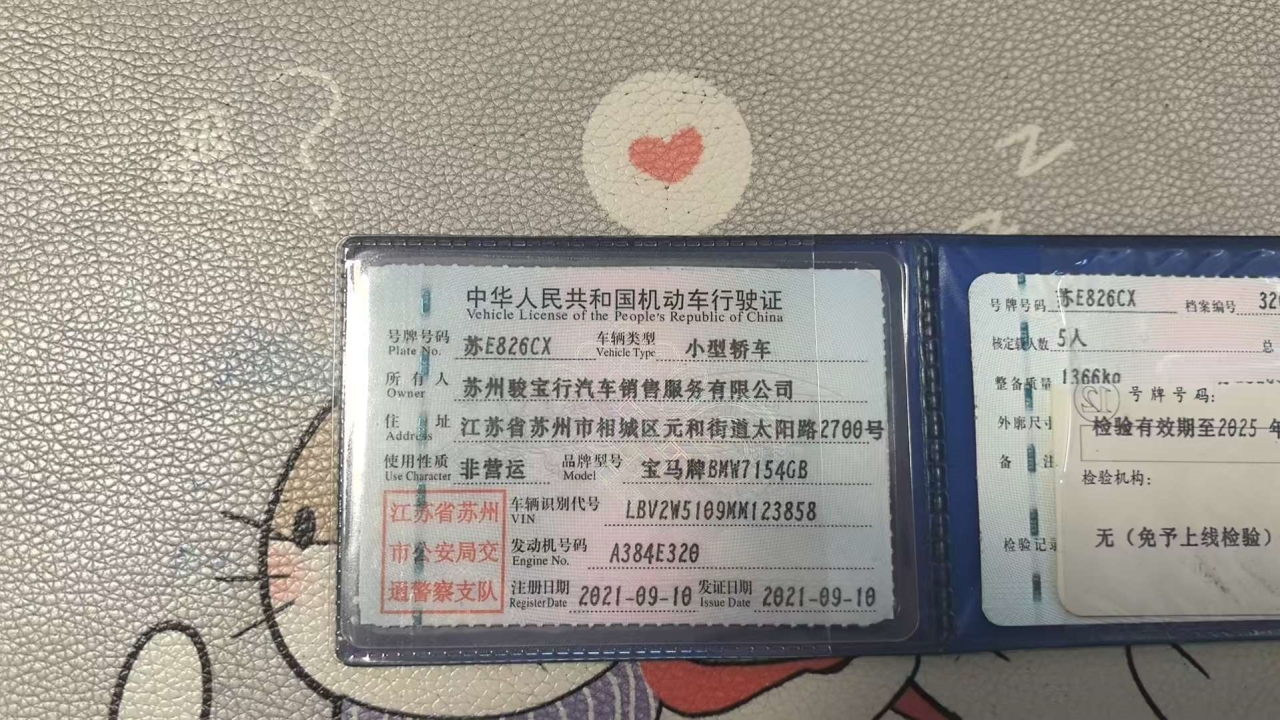 中华人民共和国机动车行驶证
Vehicle License of the People's Republic of China
号牌号码 苏E826CX 车辆类型 小型轿车
Plate No. Vehicle Type
所有人 苏州骏宝行汽车销售服务有限公司
Owner
住址 江苏省苏州市相城区元和街道太阳路2700号
Address
使用性质 非营运 品牌型号 宝马牌BMW7154GB
Use Character Model
江苏省苏州
市公安局交
通警察支队
车辆识别代号 LBV2W5109MM123858
VIN
发动机号码 A384E320
Engine No.
注册日期 2021-09-10 发证日期 2021-09-10
Register Date Issue Date
号牌号码 苏E826CX 档案编号 320
核定载人数 5人 总
整备质量 1366kg
外廓尺寸
备注
检验记录
号牌号码:
检验有效期至2025年
检验机构:
无（免予上线检验）